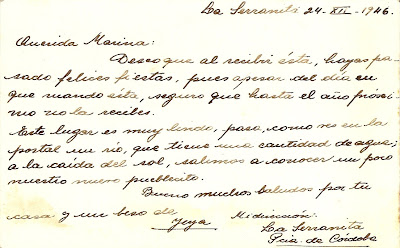 La Serranita 24-XII-1946.
Querida Marina:
Deseo que al recibir ésta, hayas pa-
sado felices fiestas, pues apesar del día en
que mando ésta, seguro que hasta el año próxi-
mo no la recibes.
Este lugar es muy lindo, pasa, como ves en la
postal un río, que tiene una cantidad de agua;
a la caída del sol, salimos a conocer un poco
nuestro nuevo pueblecito.
Bueno muchos saludos por tu
casa y un beso de
Yeya Mi dirección:
La Serranita
Pcia. de Córdoba